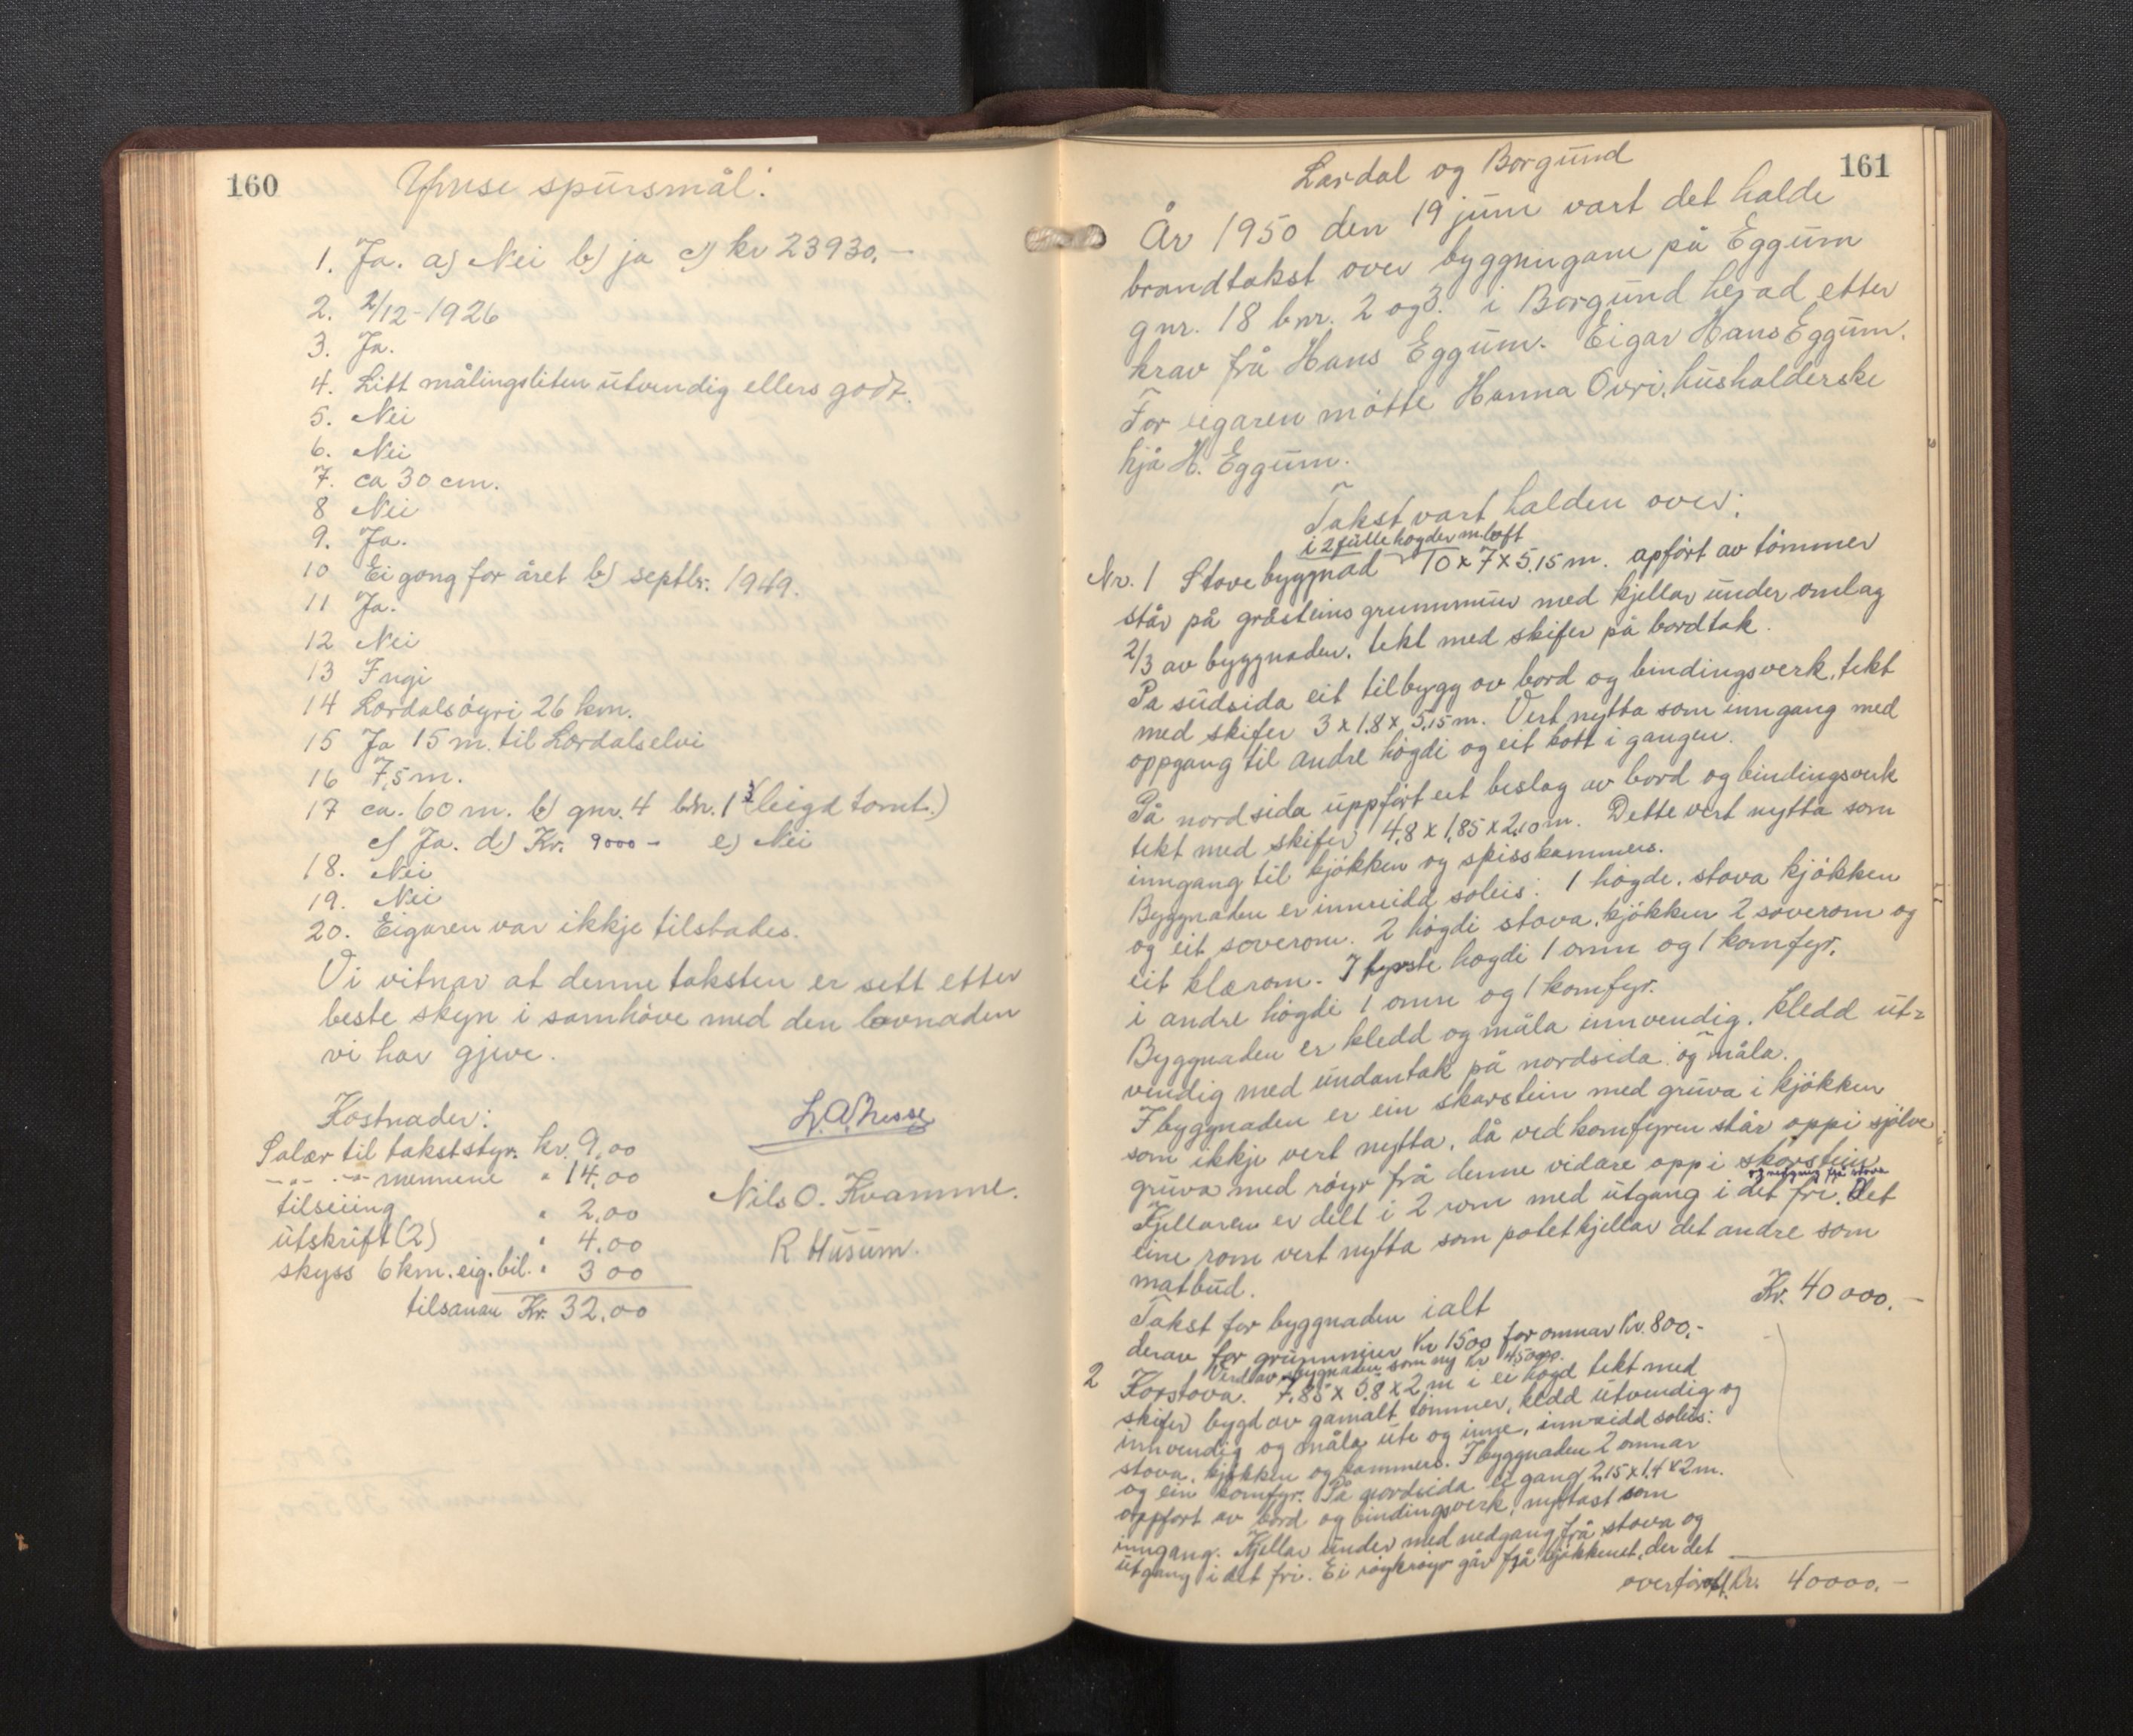 160
Ymse spursmål:
1. Ja. a) Nei b) ja c) kr 23930.-
2. 2/12-1926
3. Ja.
4. Litt målingsliten utvendig ellers godt.
5. Nei
6. Nei
7. ca 30 cm.
8 Nei
9. Ja.
10 Ei gong for året b) septbr. 1949.
11 Ja.
12 Nei
13 Ingi
14 Lærdalsøyri 26 km.
15 Ja 15 m. til Lærdalselvi
16 7,5 m.
17 ca. 60 m. b) gnr. 4 bnr. 1 (leigd tomt.)
c) Ja. d) Kr. 9000 - e) Nei
18. Nei
19. Nei
20. Eigaren var ikkje tilstades.
Vi vitnar at denne taksten er sett etter
beste skyn i samhöve med den lovnaden
vi har gjeve.
Kostnader:
Salær til takststyr. kr. 9,00
-"- -"- mennene " 14,00
tilseiing " 2,00
utskrift (2) " 4,00
skyss 6 km. eig. bil. " 3 00
tilsaman Kr. 32,00
Nils O. Kvamme.
R Husum.
161
Lærdal og Borgund
År 1950 den 19 juni vart det halde
brandtakst over byggningane på Eggum
gnr. 18 bnr. 2 og 3. i Borgund herad etter
krav frå Hans Eggum. Eigar Hans Eggum.
For eigaren møtte Hanna Øvri, husholderske
hjå H. Eggum.
Takst vart halden over:
i 2 fulle høgder m. loft
Nr. 1 Stovebyggnad 10 x 7 x 5,15 m. apført av tømmer
står på gråsteins grunnmur med kjellar under omlag
2/3 av byggnaden. tekt med skifer på bordtak.
På sudsida eit tilbygg av bord og bindingsverk, tekt
med skifer 3 x 1,8 x 5,15 m. Vert nytta som inngang med
oppgang til andre høgdi og eit kott i gangen.
På nordsida uppført eit beslag av bord og bindingsverk
tekt med skifer 4,8 x 1,85 x 2,10 m. Dette vert nytta som
inngang til kjøkken og spisskammers.
Byggnaden er innreidd soleis: 1 høgde. stova kjøkken
og eit soverom. 2 høgdi stova, kjøkken 2 soverom og
eit klærom. I fyrste høgdi 1 omn og 1 komfyr,
i andre høgdi 1 omn og 1 komfyr.
Byggnaden er kledd og måla innvendig. Kledd ut=
vendig med undantak på nordsida og måla.
I byggnaden er ein skorstein med gruva i kjøkken
som ikkje vert nytta, då vedkomfyren står oppi sjølve
gruva med røyr frå denne vidare opp i skorstein
og nedgang frå stova
Kjellaren er delt i 2 rom med utgang i det fri. Det
eine rom vert nytta som potetkjellar det andre som
matbud.
Takst for byggnaden ialt Kr. 40 000.-
derav for grunnmur kr 1500 for omnar kr. 800,-
Verd av byggnaden som ny kr 45000.
2 Korstova. 7,85 x 5,8 x 2 m i ei høgd tekt med
skifer bygd av gamalt tømmer, kledd utvendig og
innvendig og måla ute og inne, innreidd soleis:
stova, kjøkken og kammers. I byggnaden 2 omnar
og ein komfyr. På nordsida ei gang 2,15 x 1,4 x 2 m.
oppført av bord og bindingsverk, nyttast som
inngang. Kjellar under med nedgang frå stova og
utgang i det fri. Ei røykrøyr går frå kjøkkenet, der det
overført kr. 40000.-